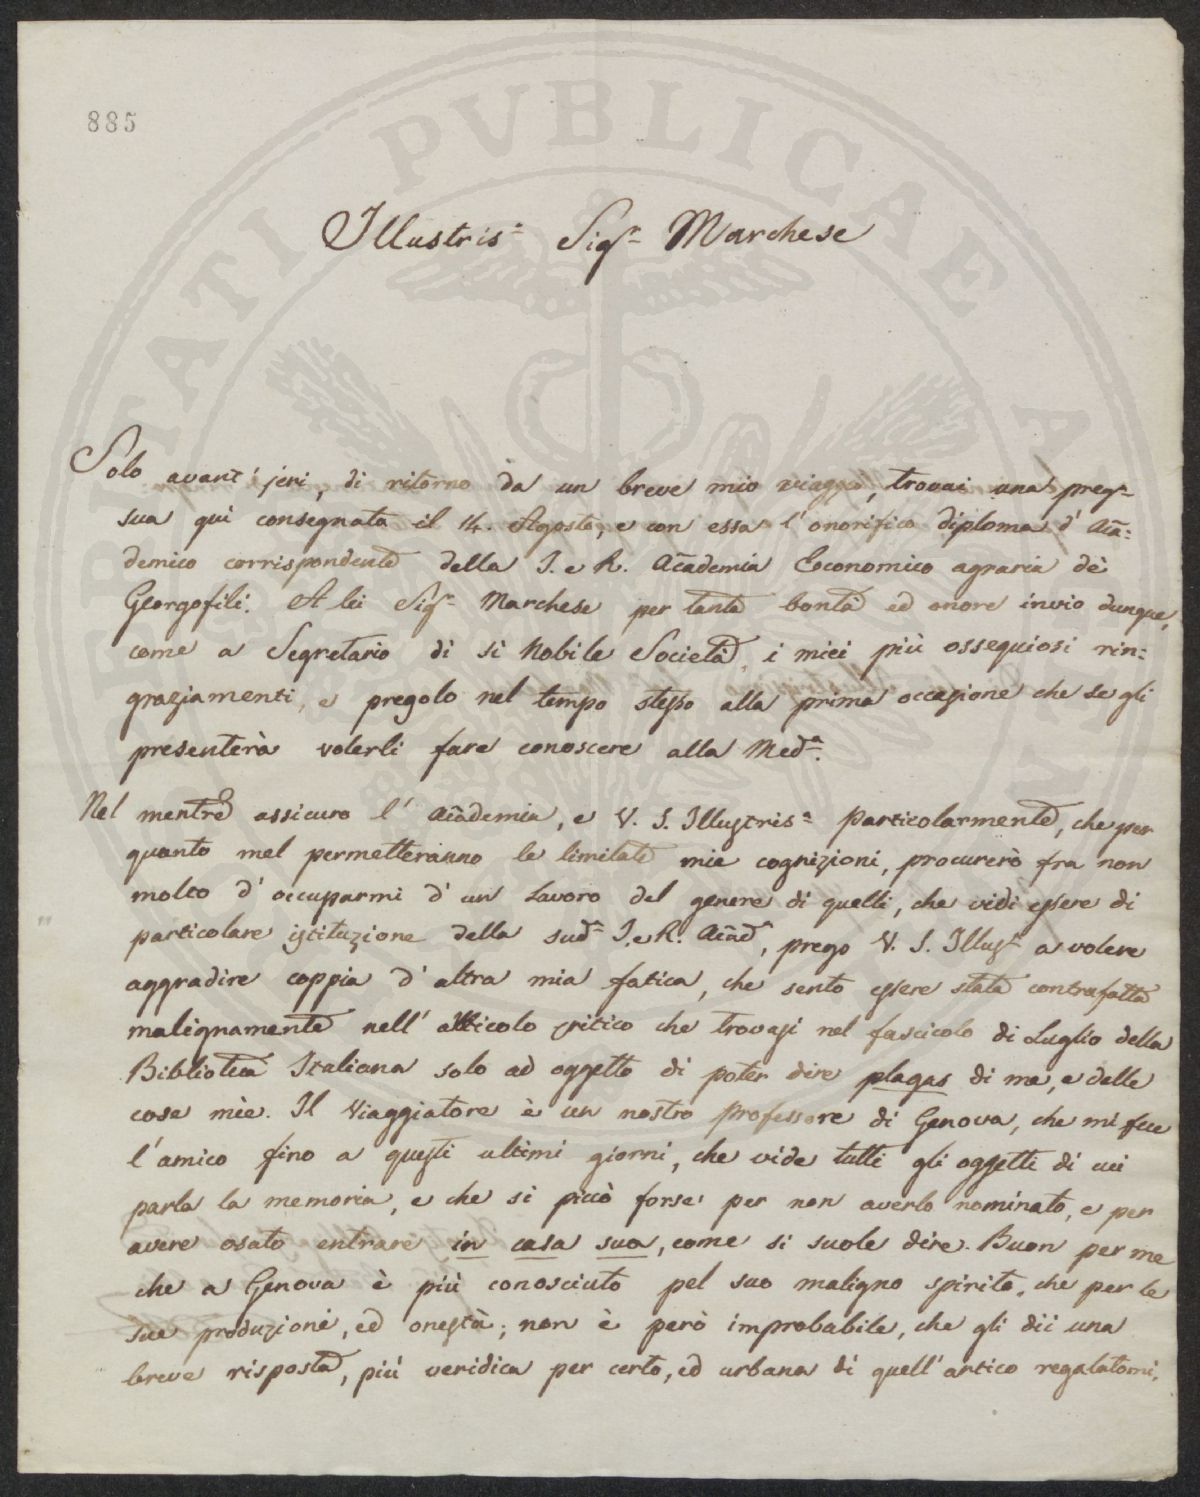 885
PROSPERITATI PVBLICAE AVGENDAE
Illustris.ª Sigr. Marchese
Solo avant'jeri, di ritorno da un breve mio viaggio, trovai una preg.ª
sua quì consegnata il 14. Agosto, e con essa l'onorifico diploma d'Acca=
demico corrispondente della I. e R. Accademia Economico agraria dè
Georgofili. A lei Sigr. Marchese per tanta bontà ed onore invio dunque,
come a Segretario di sì Nobile Società, i miei più ossequiosi rin=
graziamenti, e pregolo nel tempo stesso alla prima occasione che se gli
presenterà volerli fare conoscere alla Med.ª
Nel mentre assicuro l'Accademia, e V. S. Illustris.ª particolarmente, che per
quanto mel permetteranno le limitate mie cognizioni, procurerò fra non
molto d'occuparmi d'un Lavoro del genere di quelli, che vidi essere di
particolare istituzione della sud.ª I. e R. Accad.ª, prego V. S. Illus.ª a volere
aggradire coppia d'altra mia fatica, che sento essere stata contrafatta
malignamente nell'atticolo critico che trovasi nel fascicolo di Luglio della
Biblioteca Italiana solo ad oggetto di poter dire plagas di me, e delle
cose mie. Il Viaggiatore è un nostro Professore di Genova, che mi fece
l'amico fino a questi ultimi giorni, che vide tutti gli oggetti di cui
parla la memoria, e che si piccò forse per non averlo nominato, e per
avere osato entrare in casa sua, come si suole dire. Buon per me
che a Genova è più conosciuto pel suo maligno spirito, che per le
sue produzioni, ed onestà; non è però improbabile, che gli dii una
breve risposta, più veridica per certo, ed urbana di quell'artico regalatomi,